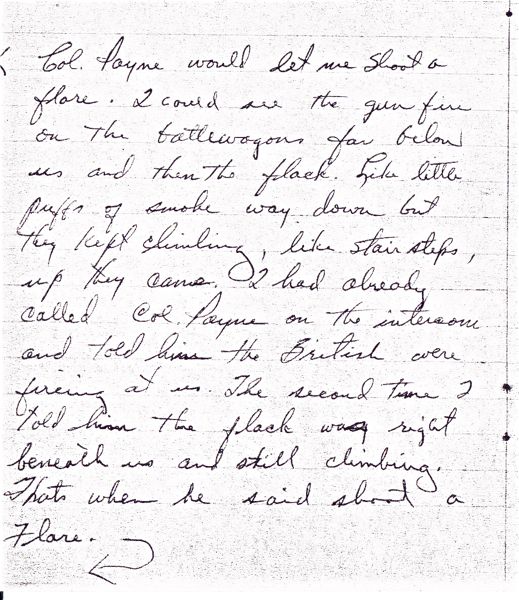 Col. Payne would let me shoot a
flare. I could see the gun fire
on the battlewagons far below
us and then the flack. Like little
puffs of smoke way down but
they kept climbing, like stair steps,
up they came. I had already
called Col. Payne on the intercom
and told him the British were
fireing at us. The second time I
told him the flack was right
beneath us and still climbing.
Thats when he said shoot a
Flare.